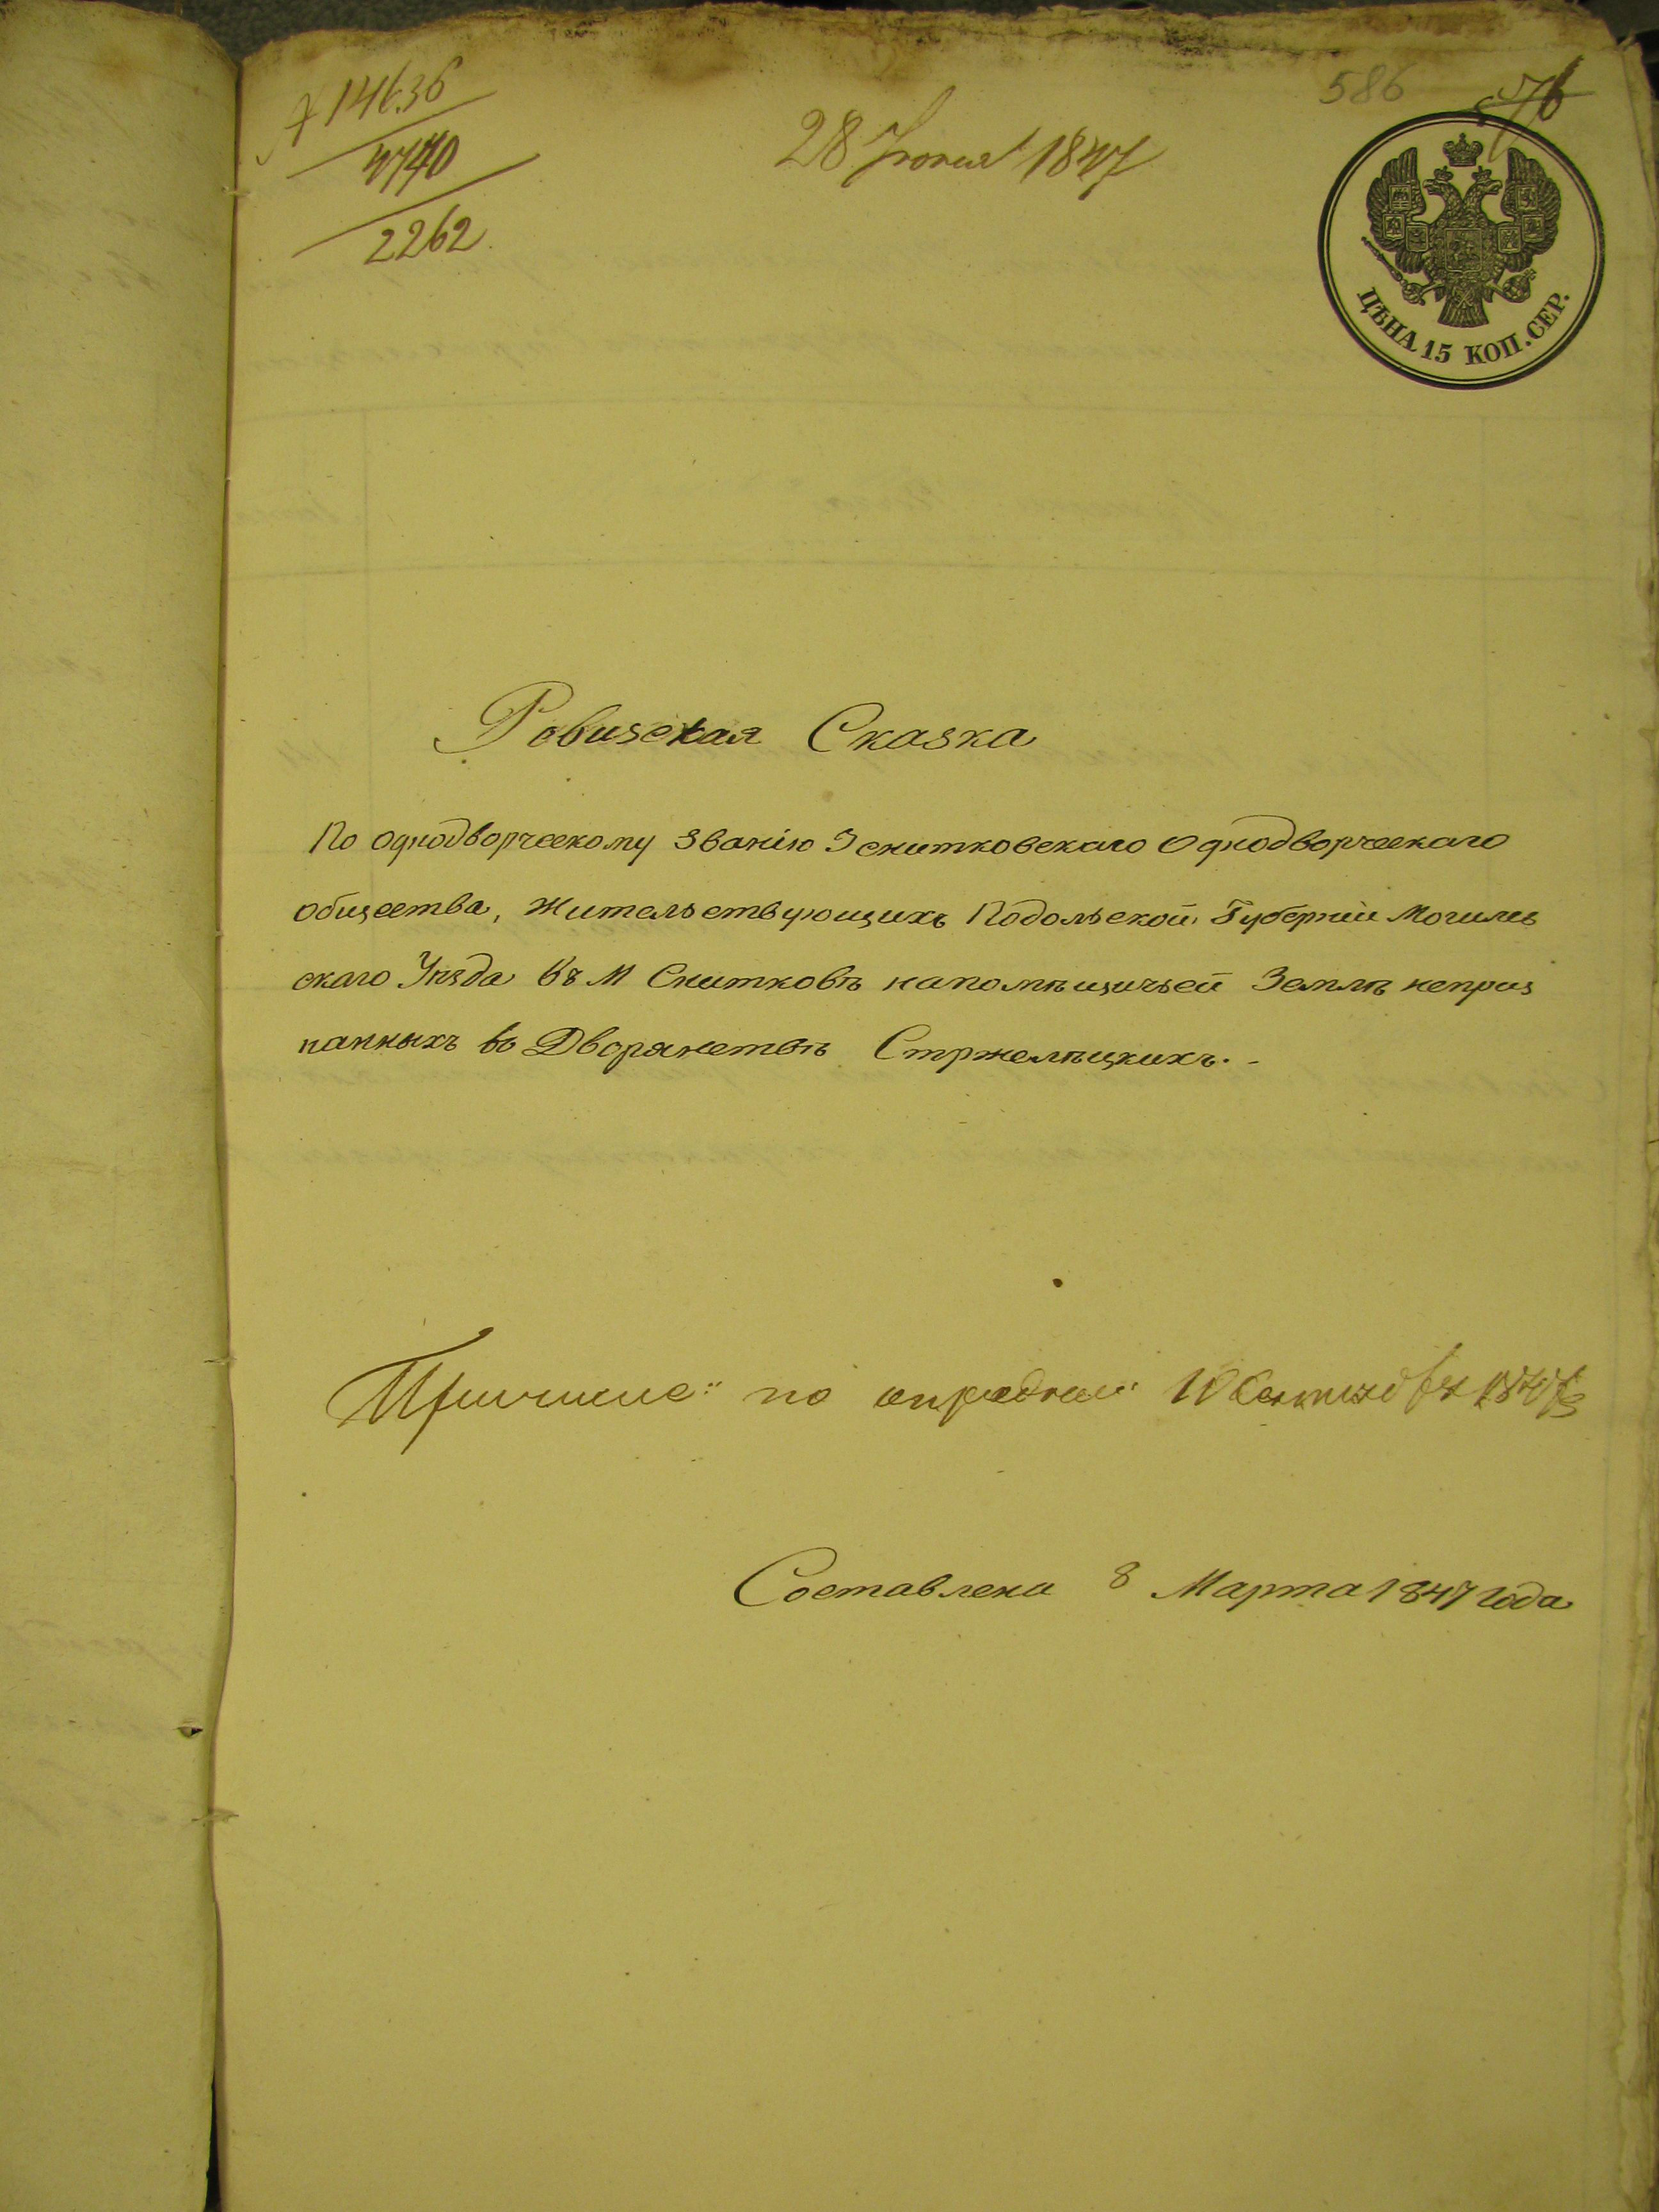 14636
4740
2262
28 Іюня 1847
586
576
ЦѢНА 15 КОП. СЕР.
Ревизская Сказка
По однодворческому званію Зснитковскаго Однодворческаго
общества, жительствующихъ Подольской Губерніи Могилев
скаго Уѣзда въ М Снитковѣ напомѣщичьей Землѣ неприз
нанныхъ въ Дворянствѣ Стржелѣцкихъ.
по 1847
Составлена 8 Марта 1847 года